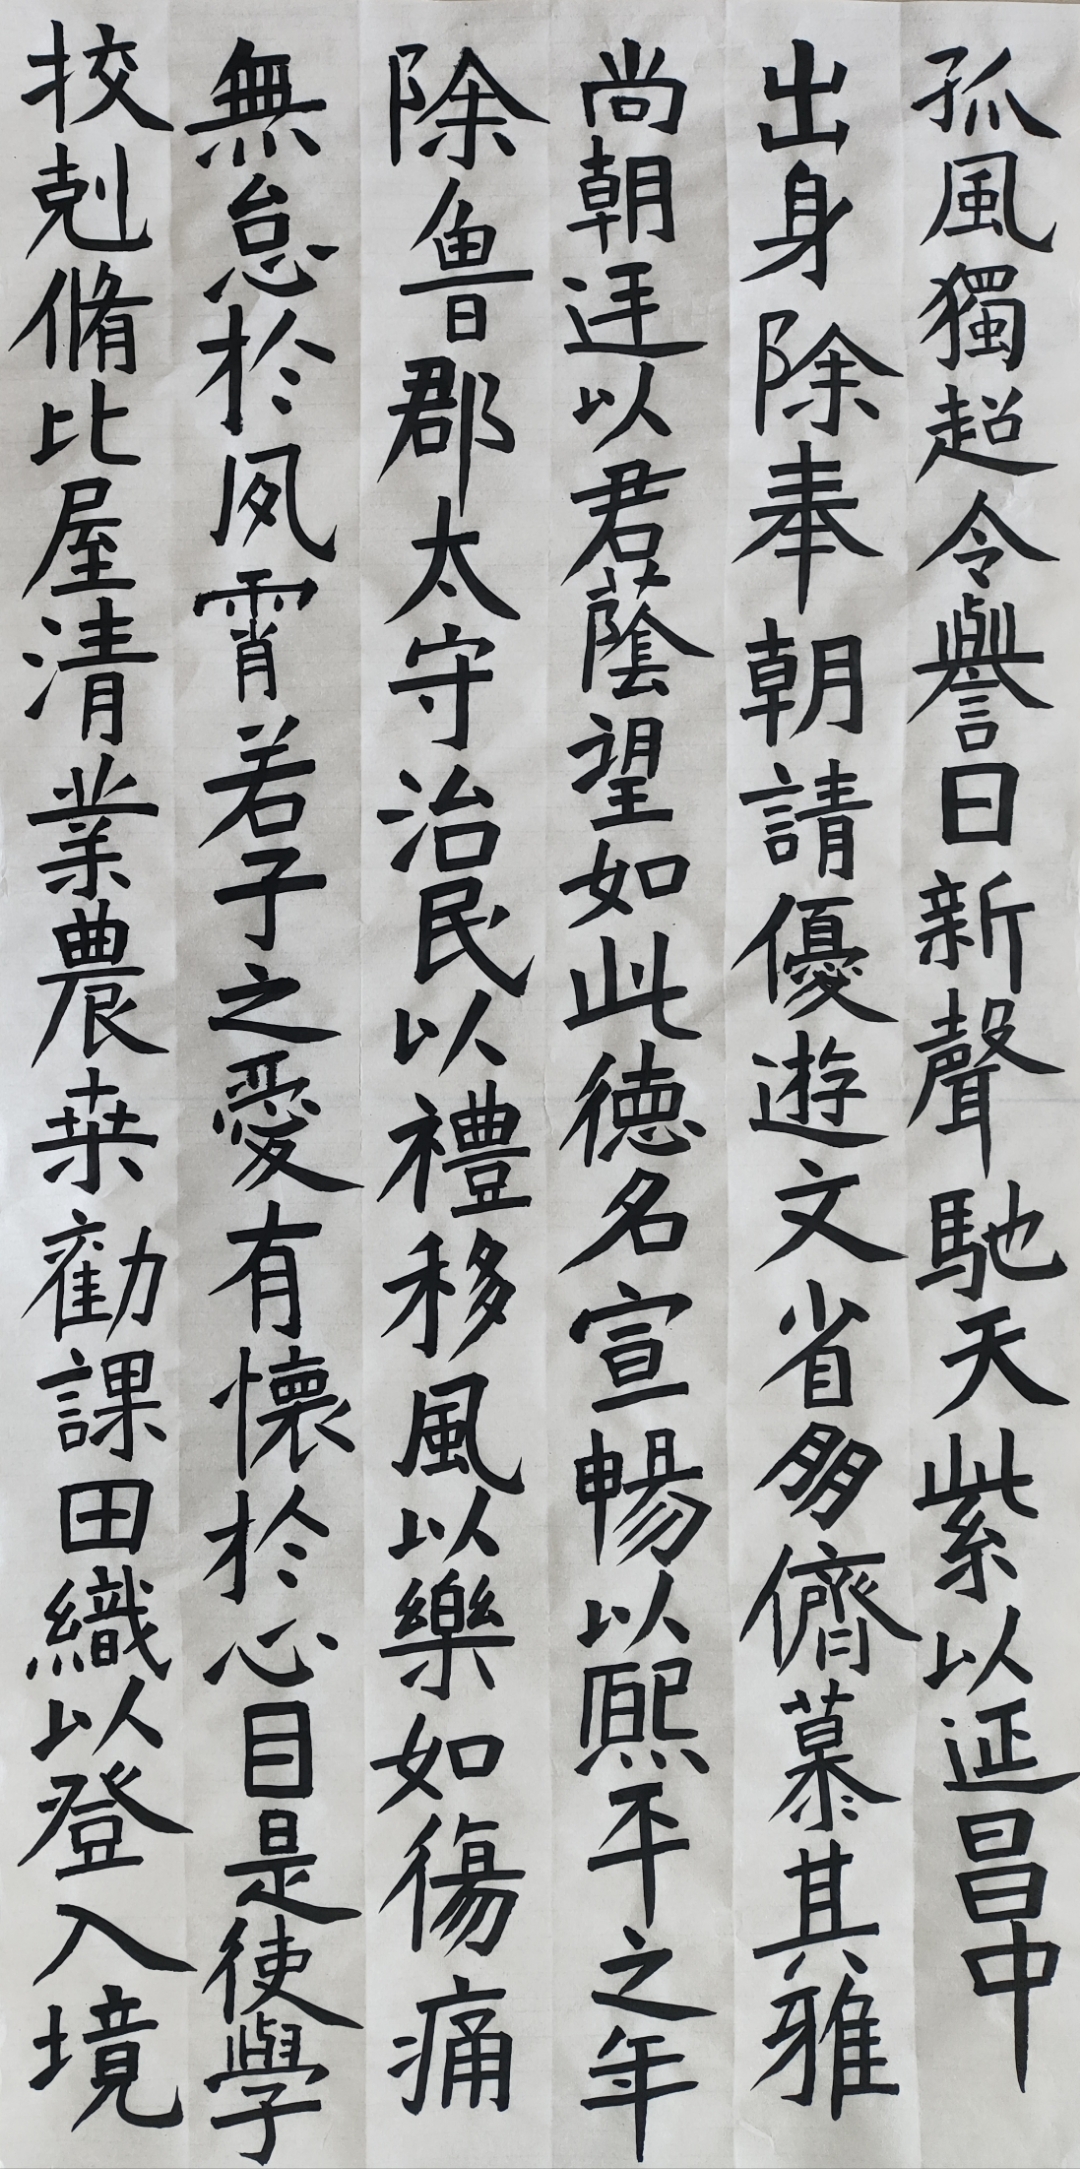 孤風獨超令譽日新聲馳天紫以延昌中
出身除奉朝請優遊文省朋儕慕其雅
尚朝廷以君蔭望如此德名宣暢以熙平之年
除魯郡太守治民以禮移風以樂如傷痛
無怠於夙宵若子之愛有懷於心目是使學
挍剋脩比屋清業農桒勸課田織以登入境